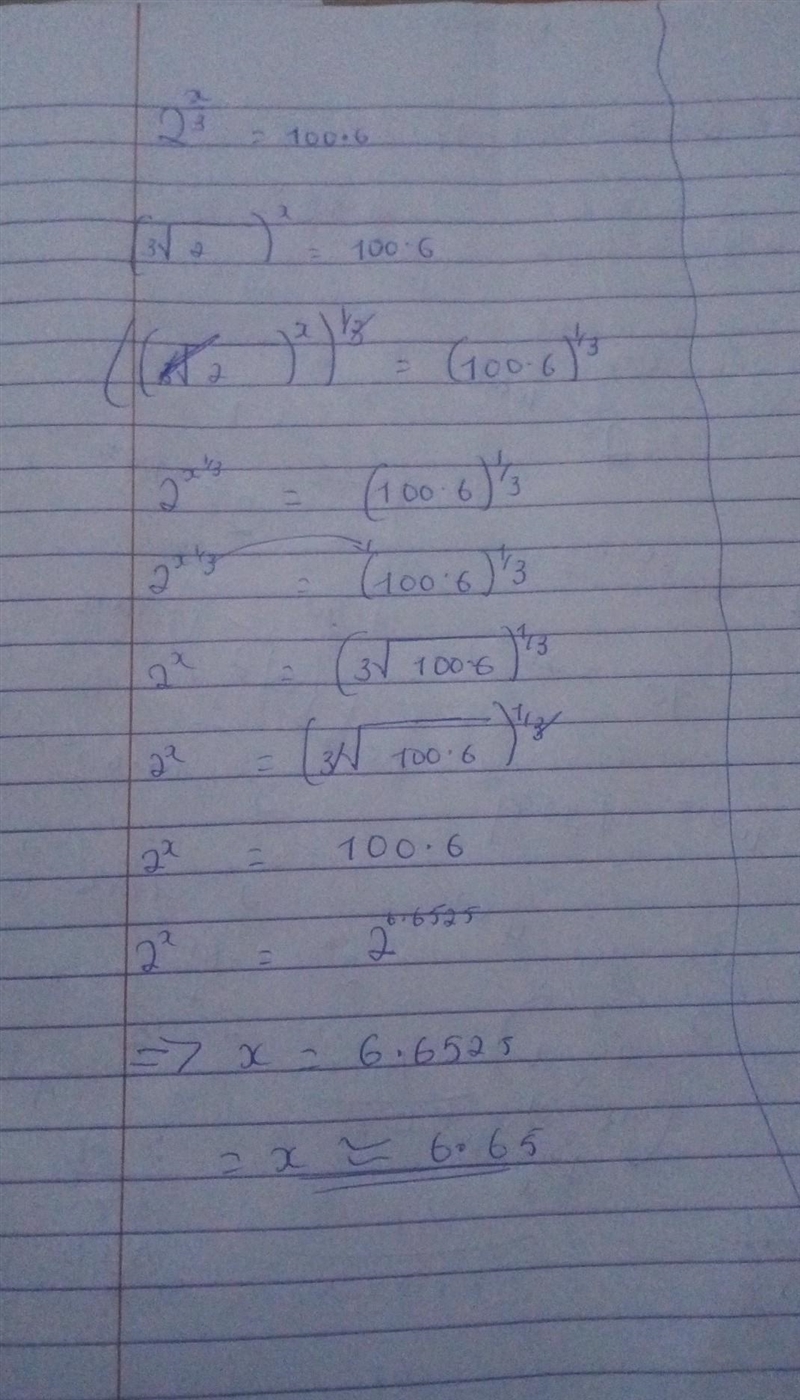 2^{x/3} = 100.6
(3√2)^x = 100.6
((3√2)^x)^{1/3} = (100.6)^{1/3}
2^{x 1/3} = (100.6)^{1/3}
2^{x 1/3} = (100.6)^{1/3}
2^x = (3√100.6)^{1/3}
2^x = (3√100.6)^{1/3}
2^x = 100.6
2^x = 2^{6.6525}
=> x = 6.6525
= x ≃ 6.65